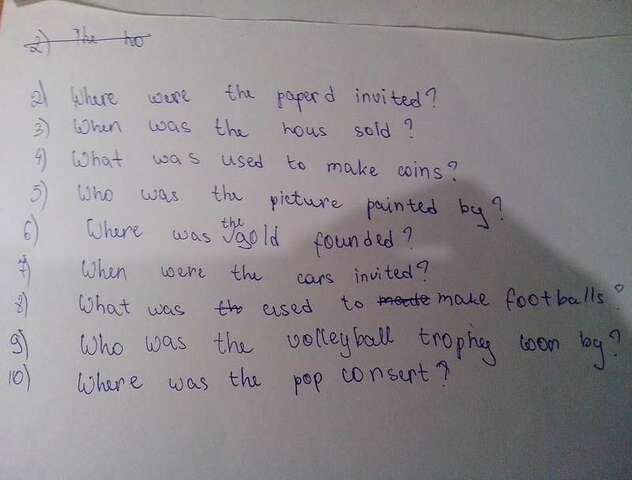 2) The ho
2) Where were the paperd invited?
3) When was the hous sold?
4) What was used to make coins?
5) Who was the picture painted by?
6) Where was the gold founded?
7) When were the cars invited?
8) What was th used to made make footballs?
9) Who was the volleyball trophey won by?
10) Where was the pop consert?